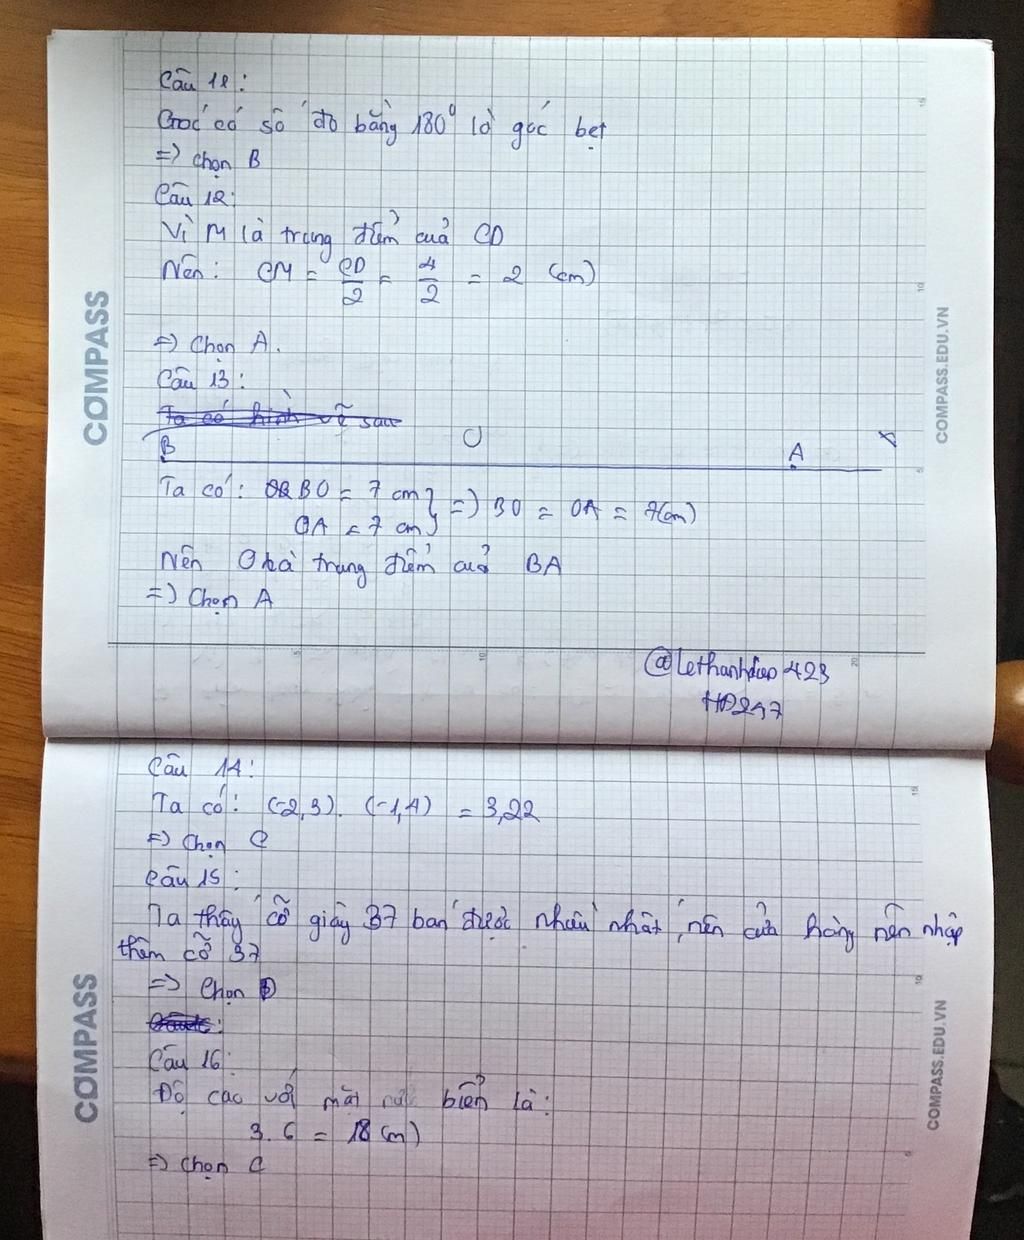 Câu 11:
Góc có số đo bằng 180⁰ là góc bẹt
=> chọn B
Câu 12:
Vì M là trung điểm cuả CD
Nên: CM = CD/2 = 4/2 = 2 (cm)
=> Chọn A.
Câu 13:
Ta có hình vẽ sau
B O A x
Ta có: BO = 7 cm } => BO = OA = 7(cm)
OA = 7 cm
Nên O là trung điểm cuả BA
=> Chọn A
@lethanhdao423
HD247
Câu 14:
Ta có: (-2,3). (-1,4) = 3,22
=> Chọn C
Câu 15:
Ta thấy cỡ giày 37 bán được nhiều nhất, nên cửa hàng nên nhập
thêm cỡ 37
=> Chọn D
Câu 16:
Độ cao với mặt nước biển là:
3. 6 = 18 (m)
=> chọn C
COMPASS
COMPASS.EDU.VN
COMPASS
COMPASS.EDU.VN